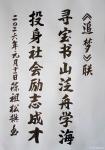 《追梦》联
寻宝书山泛舟学海
投身社会励志成才
二〇二六年元月十日陈祖松撰书